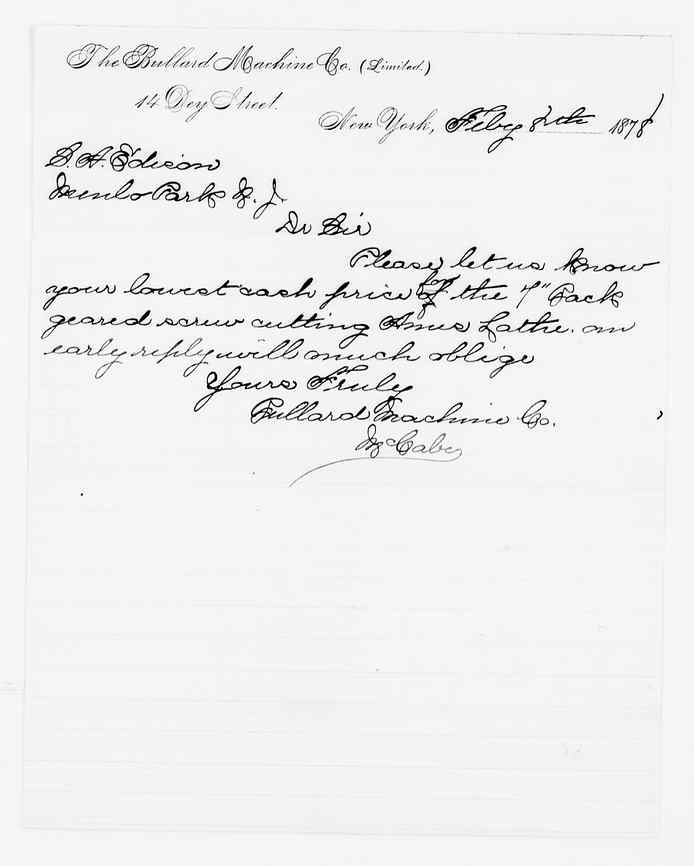 The Bullard Machine Co. (Limited.)
14 Dey Street.
New York, Feby 8th 1878
T. A. Edison
Menlo Park N. J.
Dr Sir
Please let us know
your lowest cash price of the 7" Back
geared screw cutting Ames Lathe. an
early reply will much oblige
Yours Truly
Bullard Machine Co.
McCabe